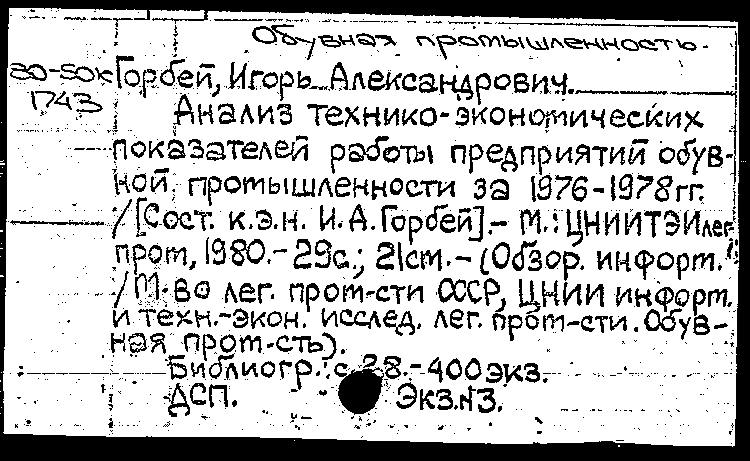 Обувная промышленность.
80-50к Горбей, Игорь Александрович.
1743
Анализ технико-экономических
показателей работы предприятий обув-
ной промышленности за 1976-1978гг.
/[Сост. к.э.н. И.А.Горбей].- М.: ЦНИИТЭИлег
пром, 1980.- 29с.; 21см.- (Обзор. информ.
/М-во лег. пром-сти СССР, ЦНИИ информ.
и техн.-экон. исслед. лег. пром-сти. Обув-
ная пром-сть).
Библиогр.: с. 28.-400экз.
ДСП. Экз.№3.